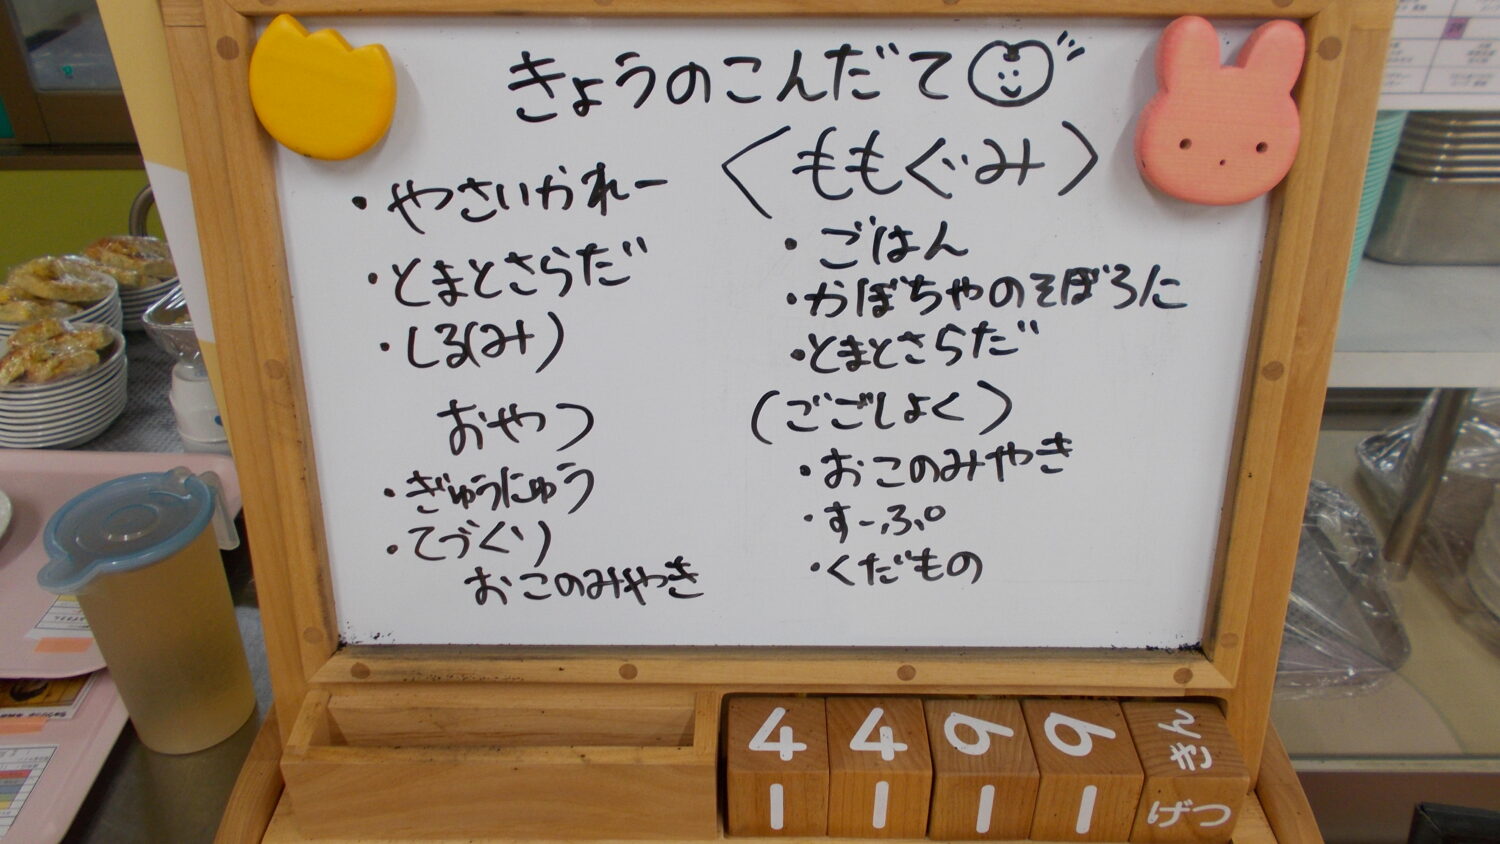 きょうのこんだて
・やさいかれー
・とまとさらだ
・しる(み)
おやつ
・ぎゅうにゅう
・てづくり
おこのみやき
〈ももぐみ〉
・ごはん
・かぼちゃのそぼろに
・とまとさらだ
(ごごしょく)
・おこのみやき
・すーぷ
・くだもの
4 4 9 9 きん
1 1 1 1 げつ